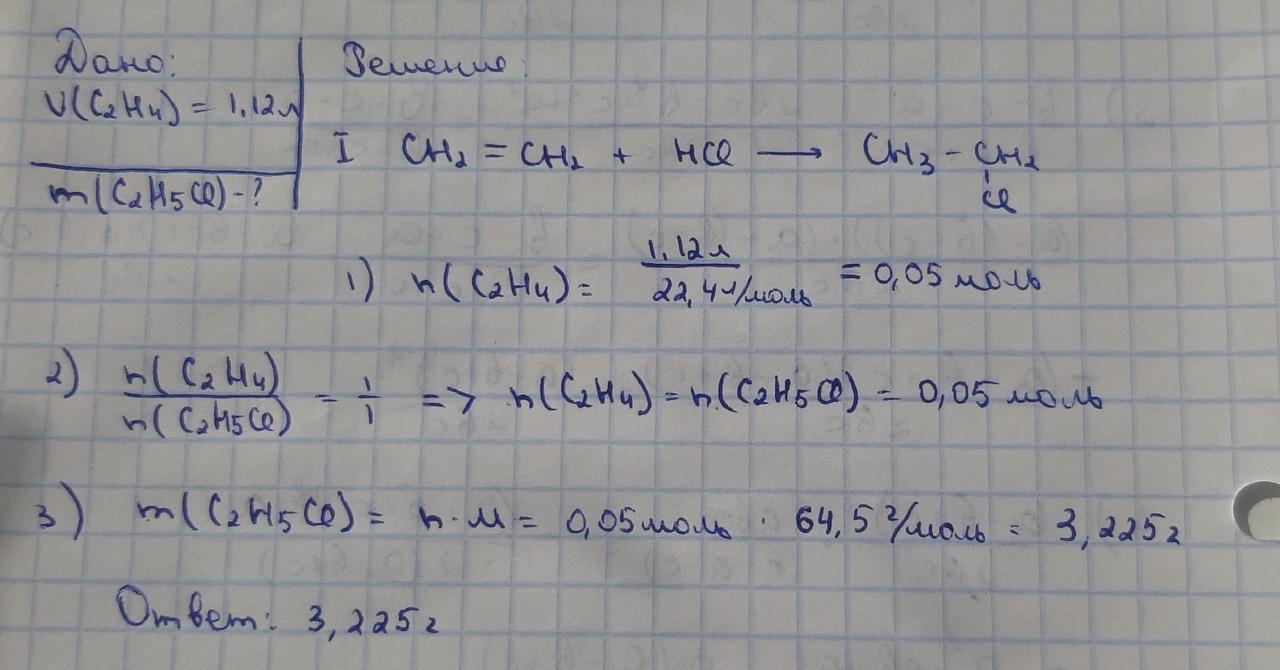 Дано:
V(C₂H₄) = 1,12л
m(C₂H₅Cl) - ?
Решение:
I CH₂ = CH₂ + HCl ⟶ CH₃ - CH₂
Cl
1) n(C₂H₄) = 1,12л / 22,4л/моль = 0,05 моль
2) n(C₂H₄) / n(C₂H₅Cl) = 1/1 => n(C₂H₄) = n(C₂H₅Cl) = 0,05 моль
3) m(C₂H₅Cl) = n · M = 0,05 моль · 64,5 г/моль = 3,225г
Ответ: 3,225г